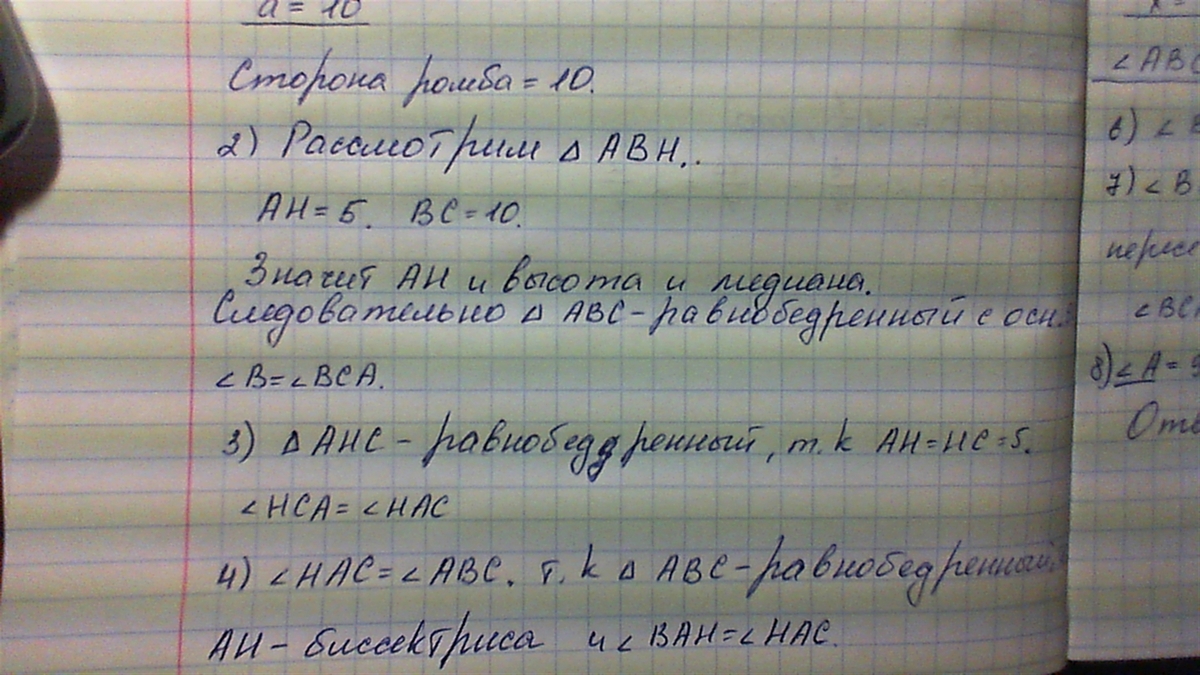 a = 10
Сторона ромба = 10.
2) Рассмотрим △ ABH..
AH = 5. BC = 10.
Значит AH и высота и медиана.
Следовательно △ ABC - равнобедренный с осн.
∠B = ∠BCA.
3) △ AHC - равнобеддренный, т. к AH = HC = 5.
∠HCA = ∠HAC
4) ∠HAC = ∠ABC. т. к △ ABC - равнобедренный
AH - биссектриса и ∠BAH = ∠HAC.
∠ABC
6) ∠
7) ∠B
∠BC
8) ∠A =